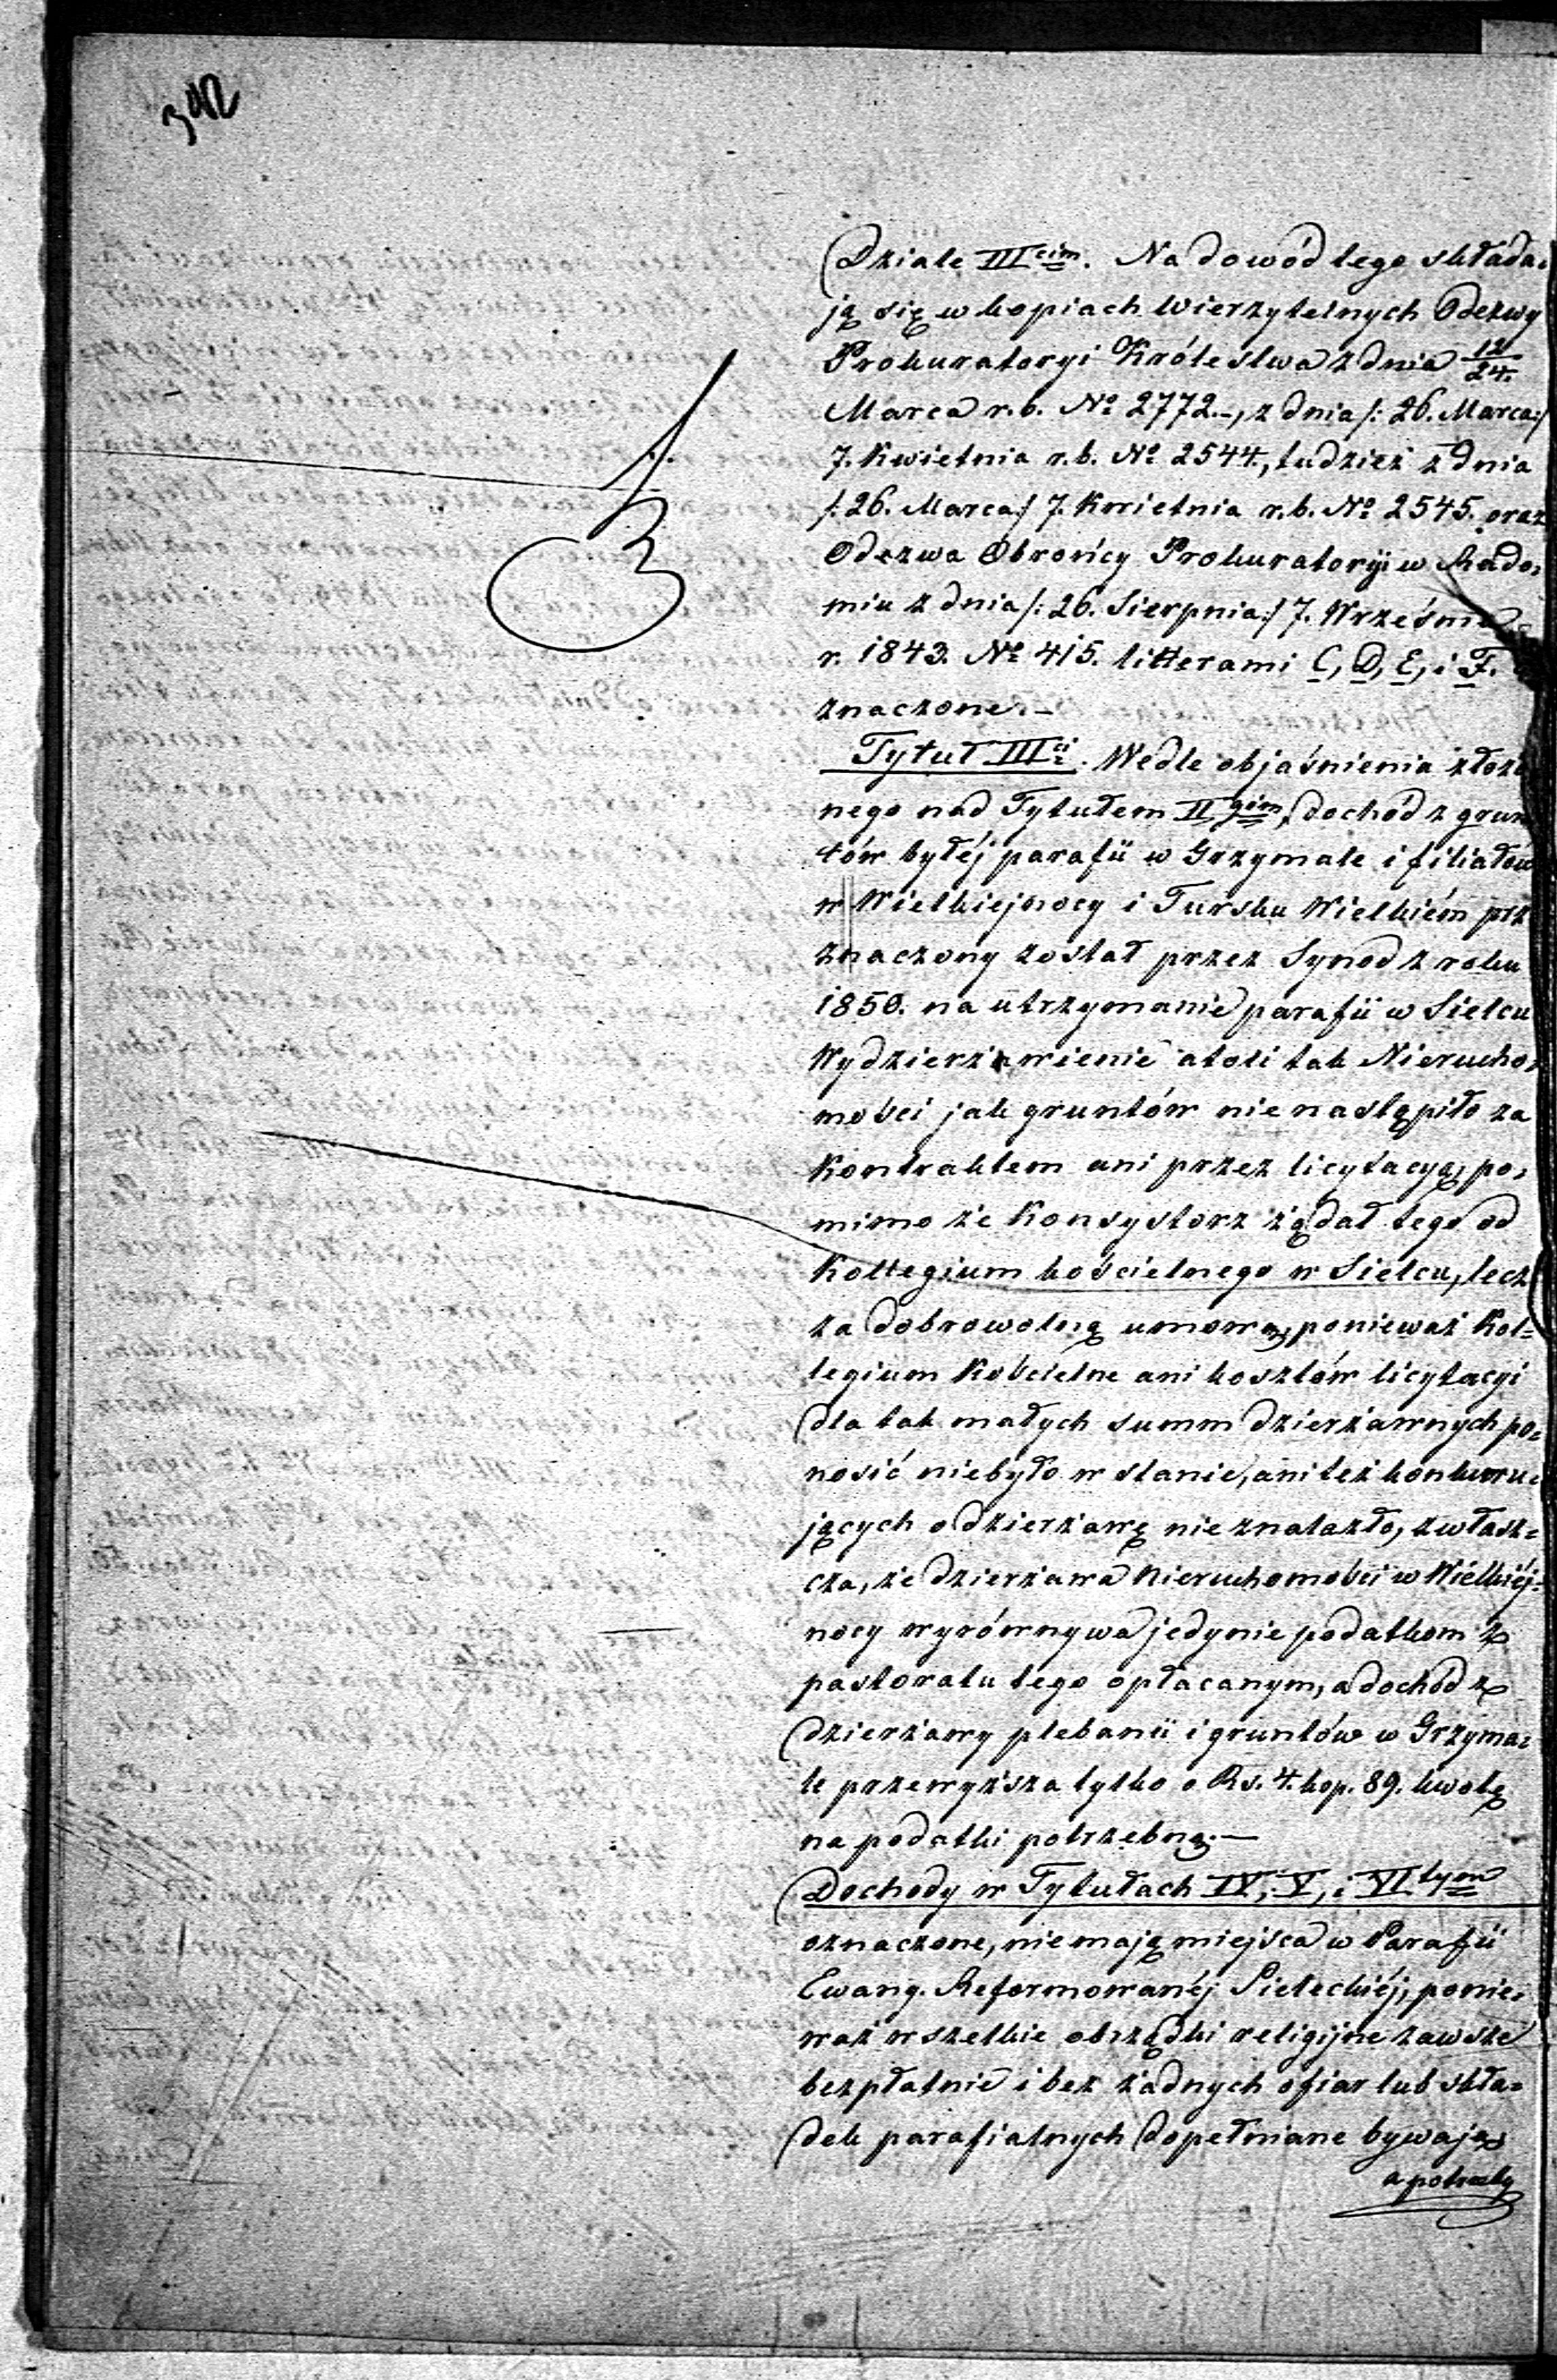 342
Dziale III<sup>cim</sup>. Na dowód tego składa=
ją się w kopiach wierzytelnych Odezwy
Prokuratoryi Królestwa z dnia 12/24.
Marca r.b. № 2772.–, z dnia /: 26. Marca:/
7. Kwietnia r.b. № 2544., tudzież z dnia
/: 26. Marca:/ 7. Kwietnia r.b. № 2545. oraz
Odezwa Obrońcy Prokuratoryi w Rado=
miu z dnia /: 26. Sierpnia:/ 7. Września
r. 1843. № 415. litterami C, D, E, i F.
znaczone.–
Tytuł III<sup>ci</sup>. Wedle objaśnienia złożo
nego nad Tytułem II<sup>gim</sup>, dochód z grun
tów byłéj parafii w Grzymale i filiałów
w Wielkiejnocy i Tursku Wielkiém prze
znaczony został przez Synod z roku
1850. na utrzymanie parafii w Sielcu
Wydzierżawienie atoli tak Nierucho=
mości jak gruntów nie nastąpiło za
Kontraktem ani przez licytacyą, po=
mimo że Konsystorz żądał tego od
Kollegium kościelnego w Sielcu, lecz
za dobrowolną umową, ponieważ Kol=
legium Kościelne ani kosztów licytacyi
dla tak małych summ dzierżawnych po=
nosić niebyło w stanie, ani też konkuru=
jących o dzierżawę nie znalazło, zwłasz=
cza, że dzierżawa Nieruchomości w Wielkiéj=
nocy wyrównywa jedynie podatkom z
pastoratu tego opłacanym, a dochód z
dzierżawy plebanii i gruntów w Grzyma=
le przewyższa tylko o Rs. 4. kop. 89. kwotę
na podatki potrzebną.–
Dochody w Tytułach IV, V, i VI<sup>tym</sup>
oznaczone, nie mają miejsca w Parafii
Ewang. Reformowanéj Sieleckiéj, ponie=
waż wszelkie obrządki religijne zawsze
bezpłatnie i bez żadnych ofiar lub skła=
dek parafialnych dopełniane bywają,
a potrzeby